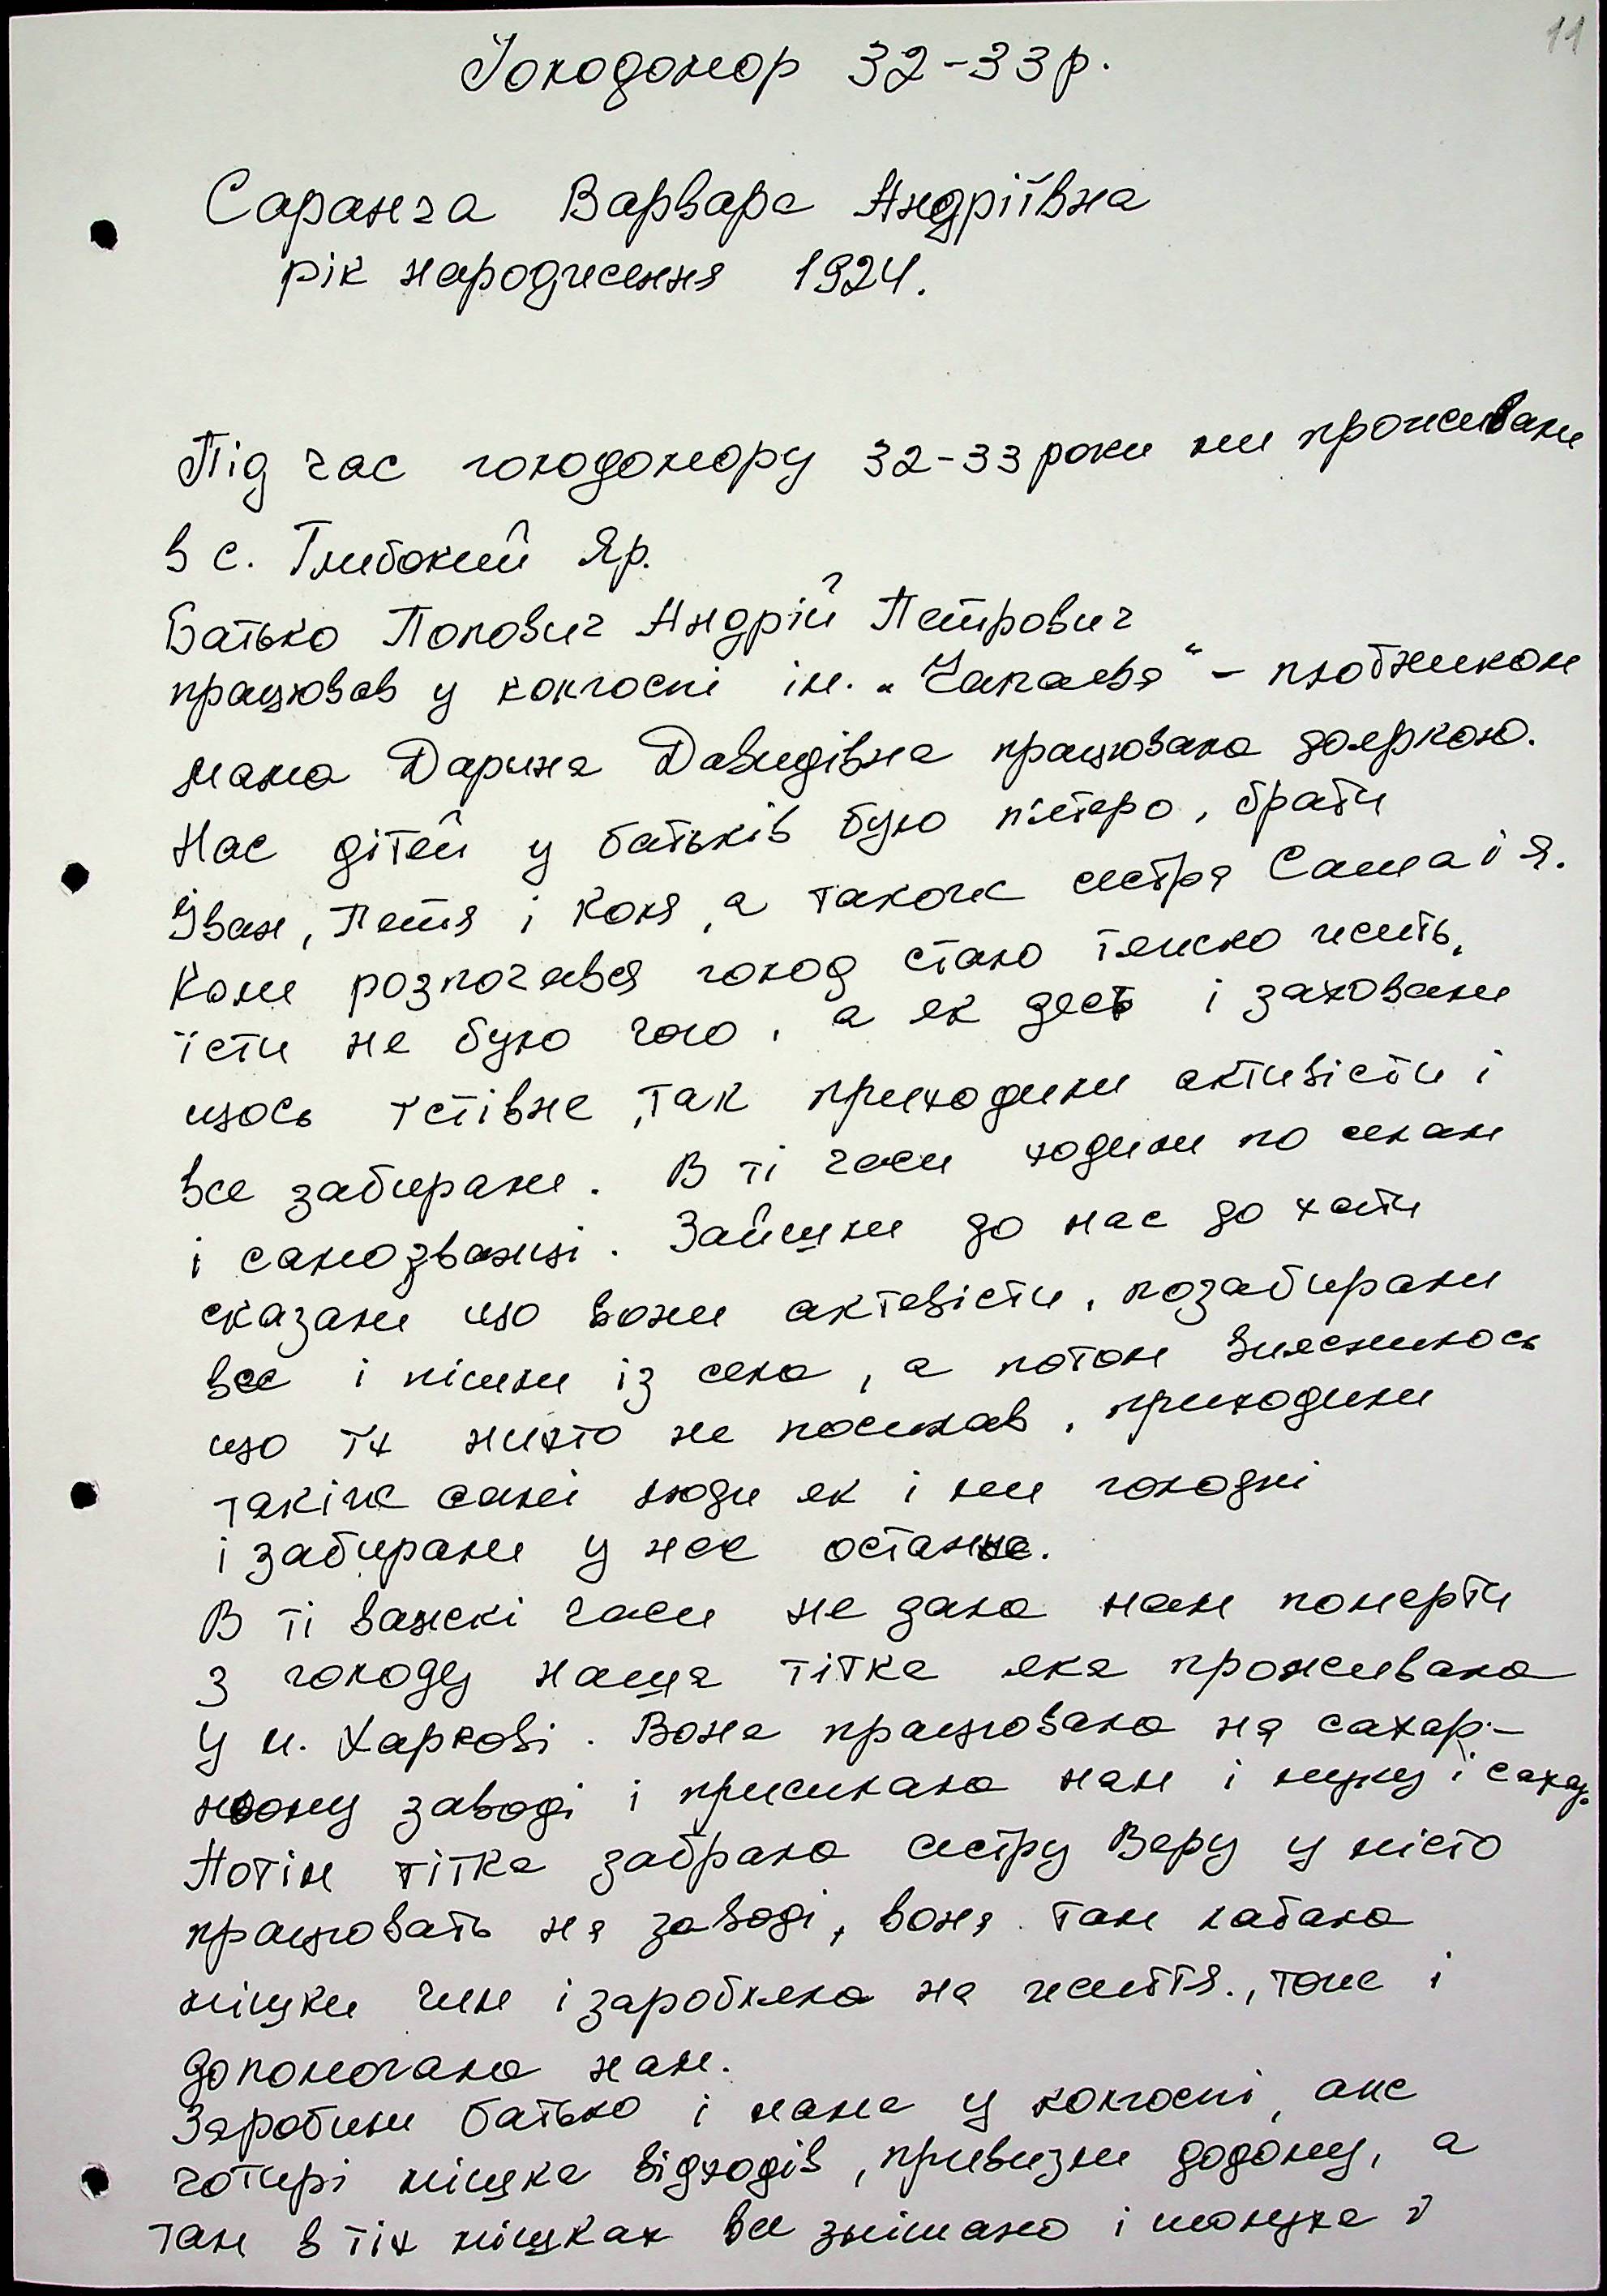 11
Голодомор 32-33р.
Саранча Варвара Андріївна
рік народження 1924.
Під час голодомору 32-33 роки ми проживали
в с. Глибокий Яр.
Батько Попович Андрій Петрович
працював у колгоспі ім. "Чапаєва" - плотником
мама Дарина Давидівна працювала дояркою.
Нас дітей у батьків було п'ятеро, брати
Іван, Петя і Коля, а також сестра Саша і я.
Коли розпочався голод стало тяжко жить,
їсти не було чого, а як десь і заховали
щось їстівне, так приходили активісти і
все забирали. В ті часи ходили по селам
і самозванці. Зайшли до нас до хати
сказали що вони активісти, позабирали
все і пішли із села, а потом вияснилось
що їх нихто не посилав, приходили
такіж самі люди як і ми голодні
і забирали у нас останнє.
В ті важкі часи не дала нам померти
з голоду наша тітка яка проживала
у м. Харкові. Вона працювала на сахар-
ному заводі і присилала нам і муку і сахар.
Потім тітка забрала сестру Веру у місто
працювать на заводі, вона там латала
мішки чим і заробляла на життя., тоже і
допомогала нам.
Заробили батько і мама у колгоспі, аж
чотирі мішка відходів, привизли додому, а
там в тіх мішках все змішано і шолуха й